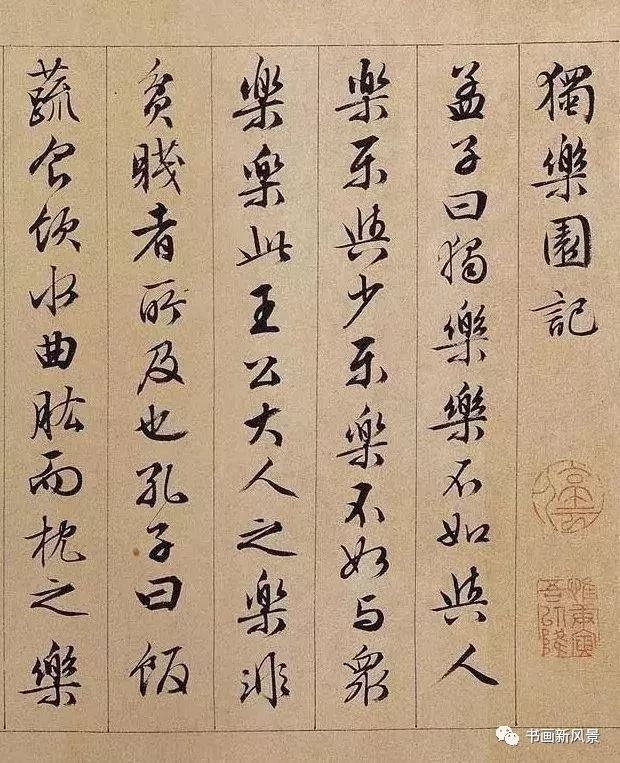 獨樂園記
孟子曰獨樂樂不如與人
樂樂與少樂樂不如与衆
樂樂此王公大人之樂非
貧賤者所及也孔子曰飯
蔬食飲水曲肱而枕之樂
停云
惟庚寅吾以降
书画新风景